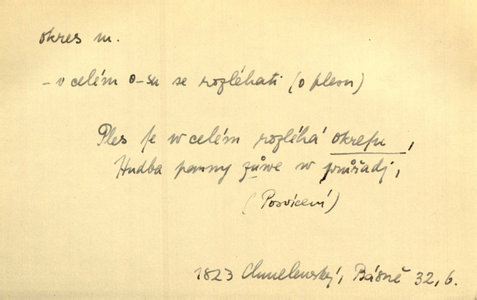 okres m.
- v celém o-su se rozléhati (o plesu)
Ples se w celém rozléhá okresu,
Hudba panny zůwe w pořadj,
(Posvícení)
1823 Chmelenský, Básně 32, 6.